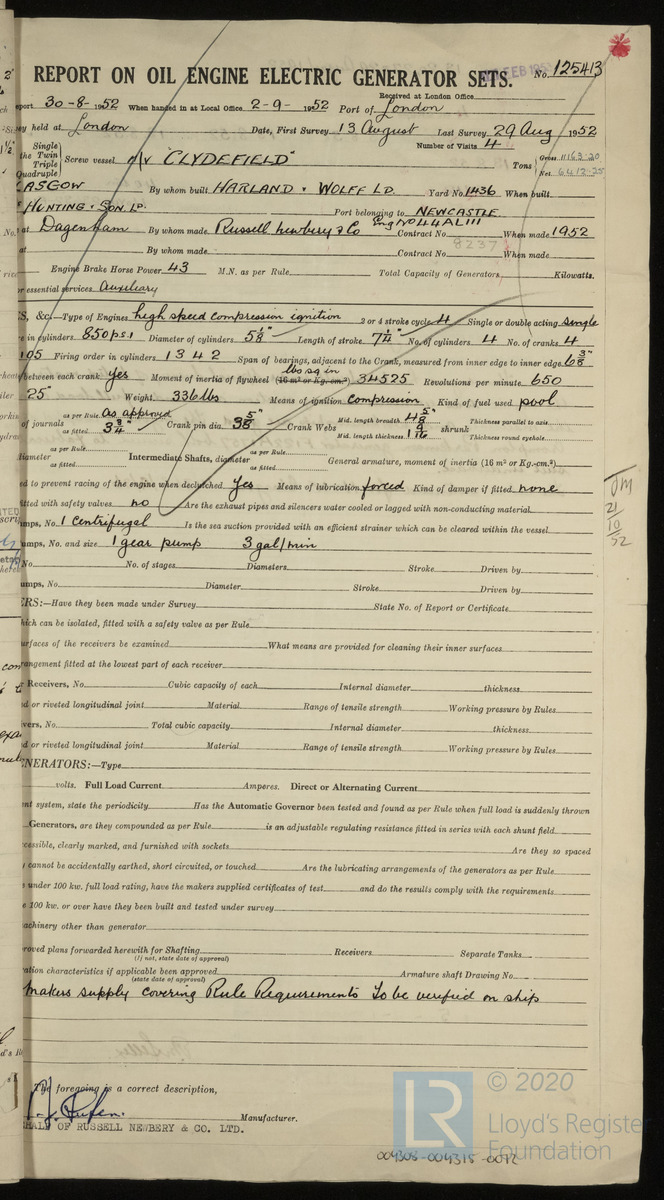 REPORT ON OIL ENGINE ELECTRIC GENERATOR SETS. No. 125413
Received at London Office
eport 30-8-1952 When handed in at Local Office 2-9-1952 Port of London
ey held at London Date, First Survey 13 August Last Survey 29 Aug 1952
Number of Visits 4
Single
the Twin
Triple
Quadruple
Screw vessel M/V "CLYDEFIELD" Tons Gross 11163.20
Net 6412.25
ASGOW By whom built HARLAND & WOLFF LD. Yard No. 1436 When built
HUNTING & SON LD. Port belonging to NEWCASTLE
Eng No 44A111
at Dagenham By whom made Russell Newbery & Co Contract No. When made 1952
8237
at By whom made Contract No. When made
Engine Brake Horse Power 43 M.N. as per Rule Total Capacity of Generators Kilowatts.
r essential services Auxiliary
S, &c.—Type of Engines high speed compression ignition 2 or 4 stroke cycle 4 Single or double acting single
e in cylinders 850 p.s.i Diameter of cylinders 5 1/8" Length of stroke 7 1/4" No. of cylinders 4 No. of cranks 4
105 Firing order in cylinders 1 3 4 2 Span of bearings, adjacent to the Crank, measured from inner edge to inner edge 6 3/8"
between each crank Yes Moment of inertia of flywheel (16 m² or Kg.-cm.²) lbs sq in 34525 Revolutions per minute 650
25" Weight 336 lbs Means of ignition compression Kind of fuel used pool
of journals as per Rule As approved as fitted 3 3/4" Crank pin dia. 3 5/8" Crank Webs Mid. length breadth 4 5/8" Thickness parallel to axis
Mid. length thickness 1 9/16 shrunk Thickness round eyehole
diameter as per Rule as fitted Intermediate Shafts, diameter as per Rule as fitted General armature, moment of inertia (16 m² or Kg.-cm.²)
ed to prevent racing of the engine when declutched Yes Means of lubrication forced Kind of damper if fitted none
itted with safety valves no Are the exhaust pipes and silencers water cooled or lagged with non-conducting material
umps, No. 1 Centrifugal Is the sea suction provided with an efficient strainer which can be cleared within the vessel
umps, No. and size 1 gear pump 3 gal/min
No. No. of stages Diameters Stroke Driven by
umps, No. Diameter Stroke Driven by
ERS:—Have they been made under Survey State No. of Report or Certificate
hich can be isolated, fitted with a safety valve as per Rule
urfaces of the receivers be examined What means are provided for cleaning their inner surfaces
rangement fitted at the lowest part of each receiver
r Receivers, No. Cubic capacity of each Internal diameter thickness
d or riveted longitudinal joint Material Range of tensile strength Working pressure by Rules
ivers, No. Total cubic capacity Internal diameter thickness
d or riveted longitudinal joint Material Range of tensile strength Working pressure by Rules
ENERATORS:—Type
volts. Full Load Current Amperes. Direct or Alternating Current
nt system, state the periodicity Has the Automatic Governor been tested and found as per Rule when full load is suddenly thrown
Generators, are they compounded as per Rule is an adjustable regulating resistance fitted in series with each shunt field
cessible, clearly marked, and furnished with sockets Are they so spaced
cannot be accidentally earthed, short circuited, or touched Are the lubricating arrangements of the generators as per Rule
under 100 kw. full load rating, have the makers supplied certificates of test and do the results comply with the requirements
e 100 kw. or over have they been built and tested under survey
achinery other than generator
roved plans forwarded herewith for Shafting Receivers Separate Tanks
(If not, state date of approval)
ation characteristics if applicable been approved Armature shaft Drawing No.
(state date of approval)
makers supply covering Rule Requirements To be verified on ship
JM
21
10
52
The foregoing is a correct description,
Manufacturer.
HALF OF RUSSELL NEWBERY & CO. LTD.
LR © 2020
Lloyd's Register
Foundation
004308-004315-0092